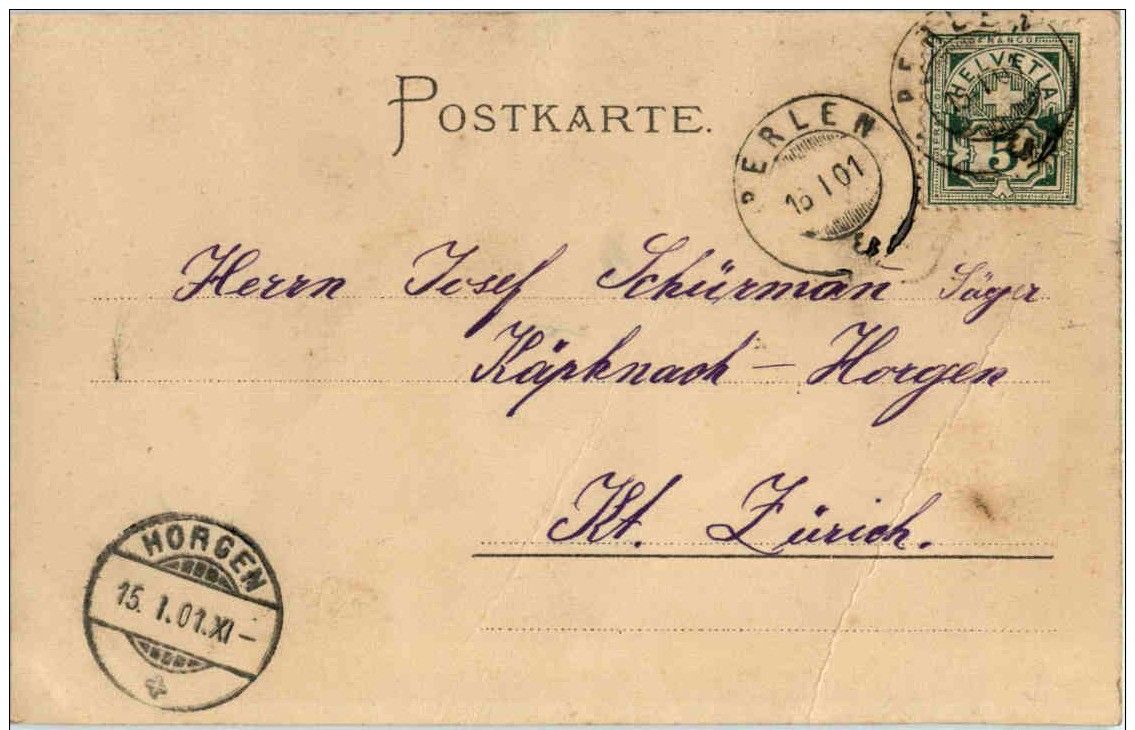 POSTKARTE.
PERLEN
15 I 01
PERLEN
FRANCO
HELVETIA
5
Herrn Josef Schürman̄ Säger
Käpknach – Horgen
Kt. Zürich.
HORGEN
15. I. 01. XI –